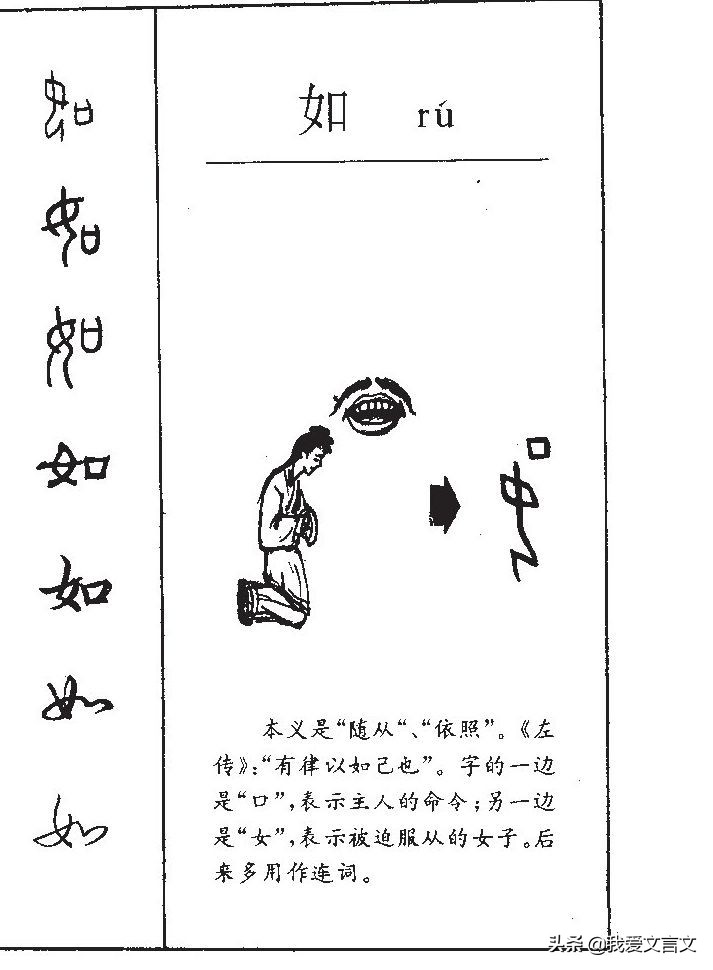 如 rú
如
如
如
如
如
如
如
本义是“随从“、“依照”。《左
传》:“有律以如己也”。字的一边
是“口”,表示主人的命令;另一边
是“女”,表示被迫服从的女子。后
来多用作连词。
头条 @我爱文言文